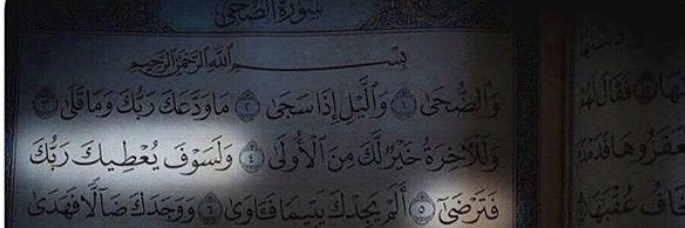 سُورَةُ الضُّحَىٰ
بِسْمِ اللَّهِ الرَّحْمَٰنِ الرَّحِيمِ
وَٱلضُّحَىٰ ١ وَٱلَّيْلِ إِذَا سَجَىٰ ٢ مَا وَدَّعَكَ رَبُّكَ وَمَا قَلَىٰ ٣
وَلَلْـَٔاخِرَةُ خَيْرٌ لَّكَ مِنَ ٱلْأُولَىٰ ٤ وَلَسَوْفَ يُعْطِيكَ رَبُّكَ
فَتَرْضَىٰٓ ٥ أَلَمْ يَجِدْكَ يَتِيمًا فَـَٔاوَىٰ ٦ وَوَجَدَكَ ضَآلًّا فَهَدَىٰ
فَقَالَ لَهُمْ
فَعَقَرُوهَا فَدَمْدَمَ
يَخَافُ عُقْبَٰهَا